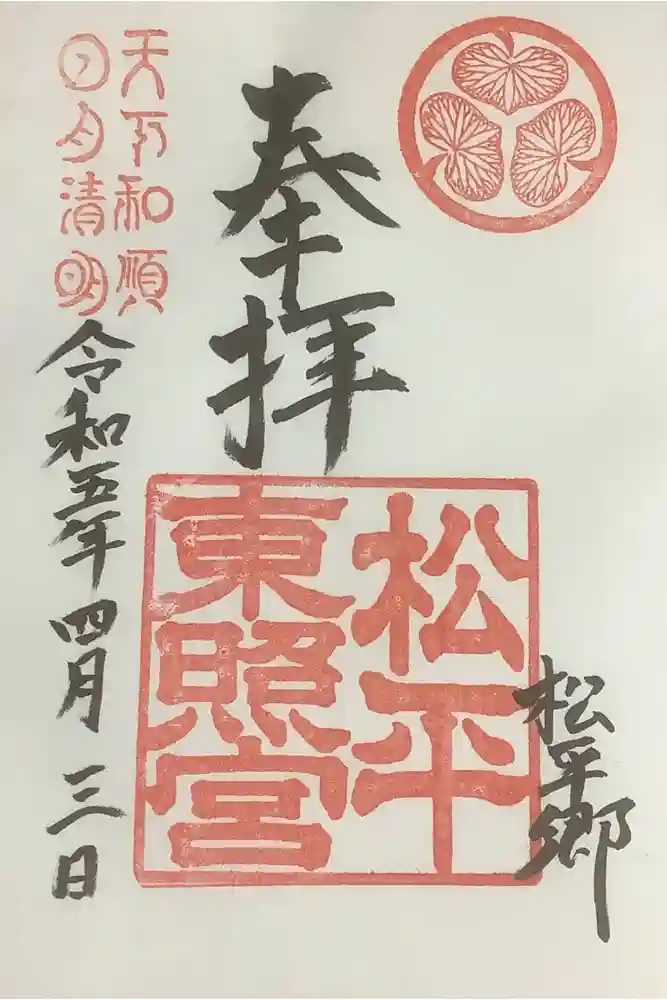 奉拝
松平郷
松平
東照宮
天下和順
日月清明
令和五年四月三日